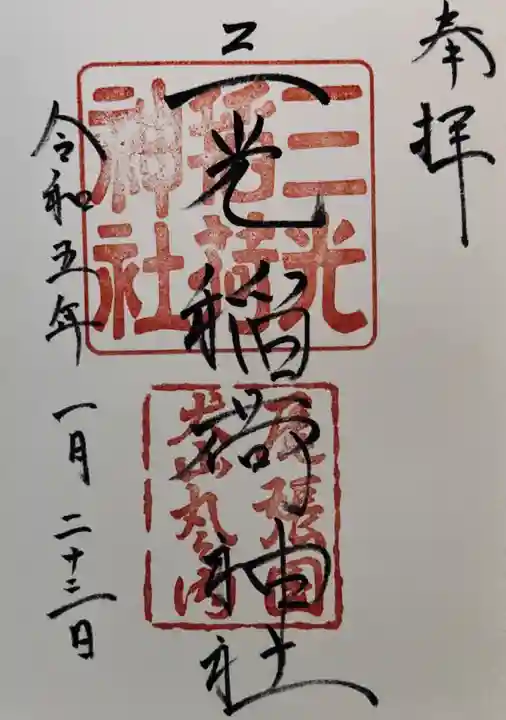 奉拝
三光稲荷神社
三光
稲荷
神社
尾張国
令和五年 一月二十三日